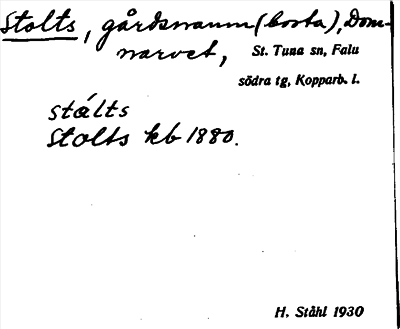 Stolts, gårdsnamn (borta), Dom-
narvet, St. Tuna sn, Falu
södra tg, Kopparb. l.
stålts
Stolts kb 1880.
H. Ståhl 1930